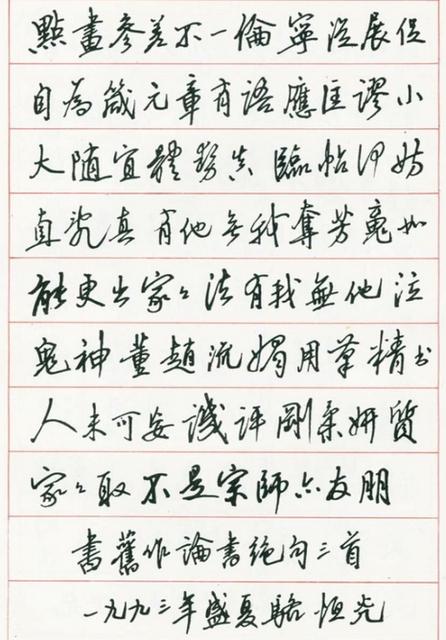 點畫參差不一倫寧從展促
自為箴元章有語應匡謬小
大随宜體勢真臨帖何妨
直究真有他無我奪芳魂如
能更出家々法有我無他泣
鬼神董趙流媚用筆精书
人未可妄譏評剛柔妍質
家々取不是宗師亦友朋
書舊作論書絕句三首
一九九三年盛夏駱恒光